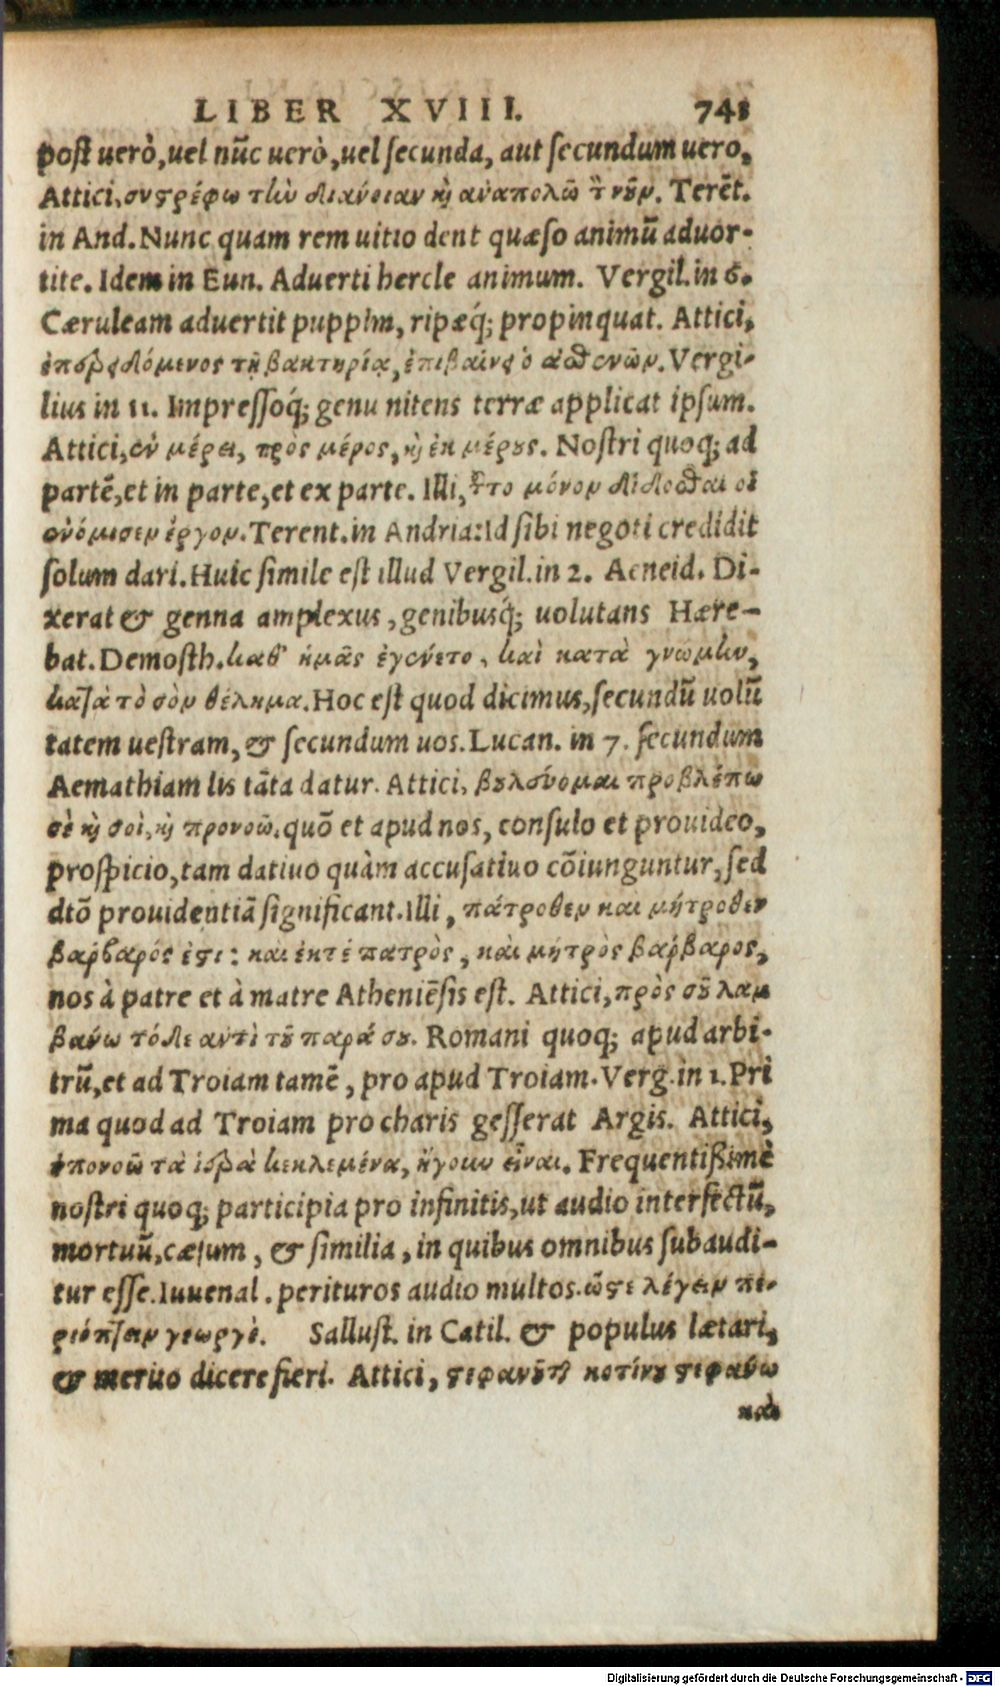 LIBER XVIII. 741
post uerò, uel nũc uerò, uel secunda, aut secundum uero,
Attici, συστρέφω τὴν διάνοιαν καὶ ἀναπολῶ τ νοῦν. Terẽt.
in And. Nunc quam rem uitio dent quæso animũ aduor-
tite. Idem in Eun. Aduerti hercle animum. Vergil. in 6.
Cæruleam aduertit puppim, ripæq́; propinquat. Attici,
ἐπερειδόμενος τῇ βακτηρίᾳ, ἐπιβαίνει ὁ ἀσθενῶν. Vergi-
lius in 11. Impressoq́; genu nitens terræ applicat ipsum.
Attici, ἐν μέρει, πρὸς μέρος, καὶ ἐκ μέρους. Nostri quoq; ad
partẽ, et in parte, et ex parte. Illi, τοῦτο μόνον δίδοσθαι οἱ
ἐνόμισεν ἔργον. Terent. in Andria: Id sibi negoti credidit
solum dari. Huic simile est illud Vergil. in 2. Aeneid. Di-
xerat & genna amplexus, genibusq́; uolutans Hære-
bat. Demosth. καθ' ἡμᾶς ἐγένετο, καὶ κατὰ γνώμην,
κατὰ τὸ σὸν θέλημα. Hoc est quod dicimus, secundũ uolũ
tatem uestram, & secundum uos. Lucan. in 7. secundum
Aemathiam lis tãta datur. Attici, βουλεύομαι προβλέπω
σὲ καὶ σοὶ, καὶ προνοῶ. quõ et apud nos, consulo et prouideo,
prospicio, tam datiuo quàm accusatiuo cõiunguntur, sed
dtõ prouidentiã significant. Illi, πάτροθεν και μήτροθεν
βαρβαρός ἐστι: καὶ ἐκ τέ πατρὸς, καὶ μητρὸς βάρβαρος,
nos à patre et à matre Atheniẽsis est. Attici, πρὸς σοῦ λαμ
βανω τόδε αντὶ τοῦ παρά σου. Romani quoq; apud arbi-
trũ, et ad Troiam tamẽ, pro apud Troiam. Verg. in 1. Pri
ma quod ad Troiam pro charis gesserat Argis. Attici,
ὑπονοῶ τὰ ἱερὰ κεκλεμένα, ἤγουν εἶναι. Frequentißimè
nostri quoq; participia pro infinitis, ut audio interfectũ,
mortuũ, cæsum, & similia, in quibus omnibus subaudi-
tur esse. Iuuenal. perituros audio multos. ὥστε λέγειν πε-
ριόπτειν γεωργὸ. Sallust. in Catil. & populus lætari,
& merito dicere fieri. Attici, στεφανοῦται κοτίνου στεφάνω
καὶ
Digitalisierung gefördert durch die Deutsche Forschungsgemeinschaft - DFG